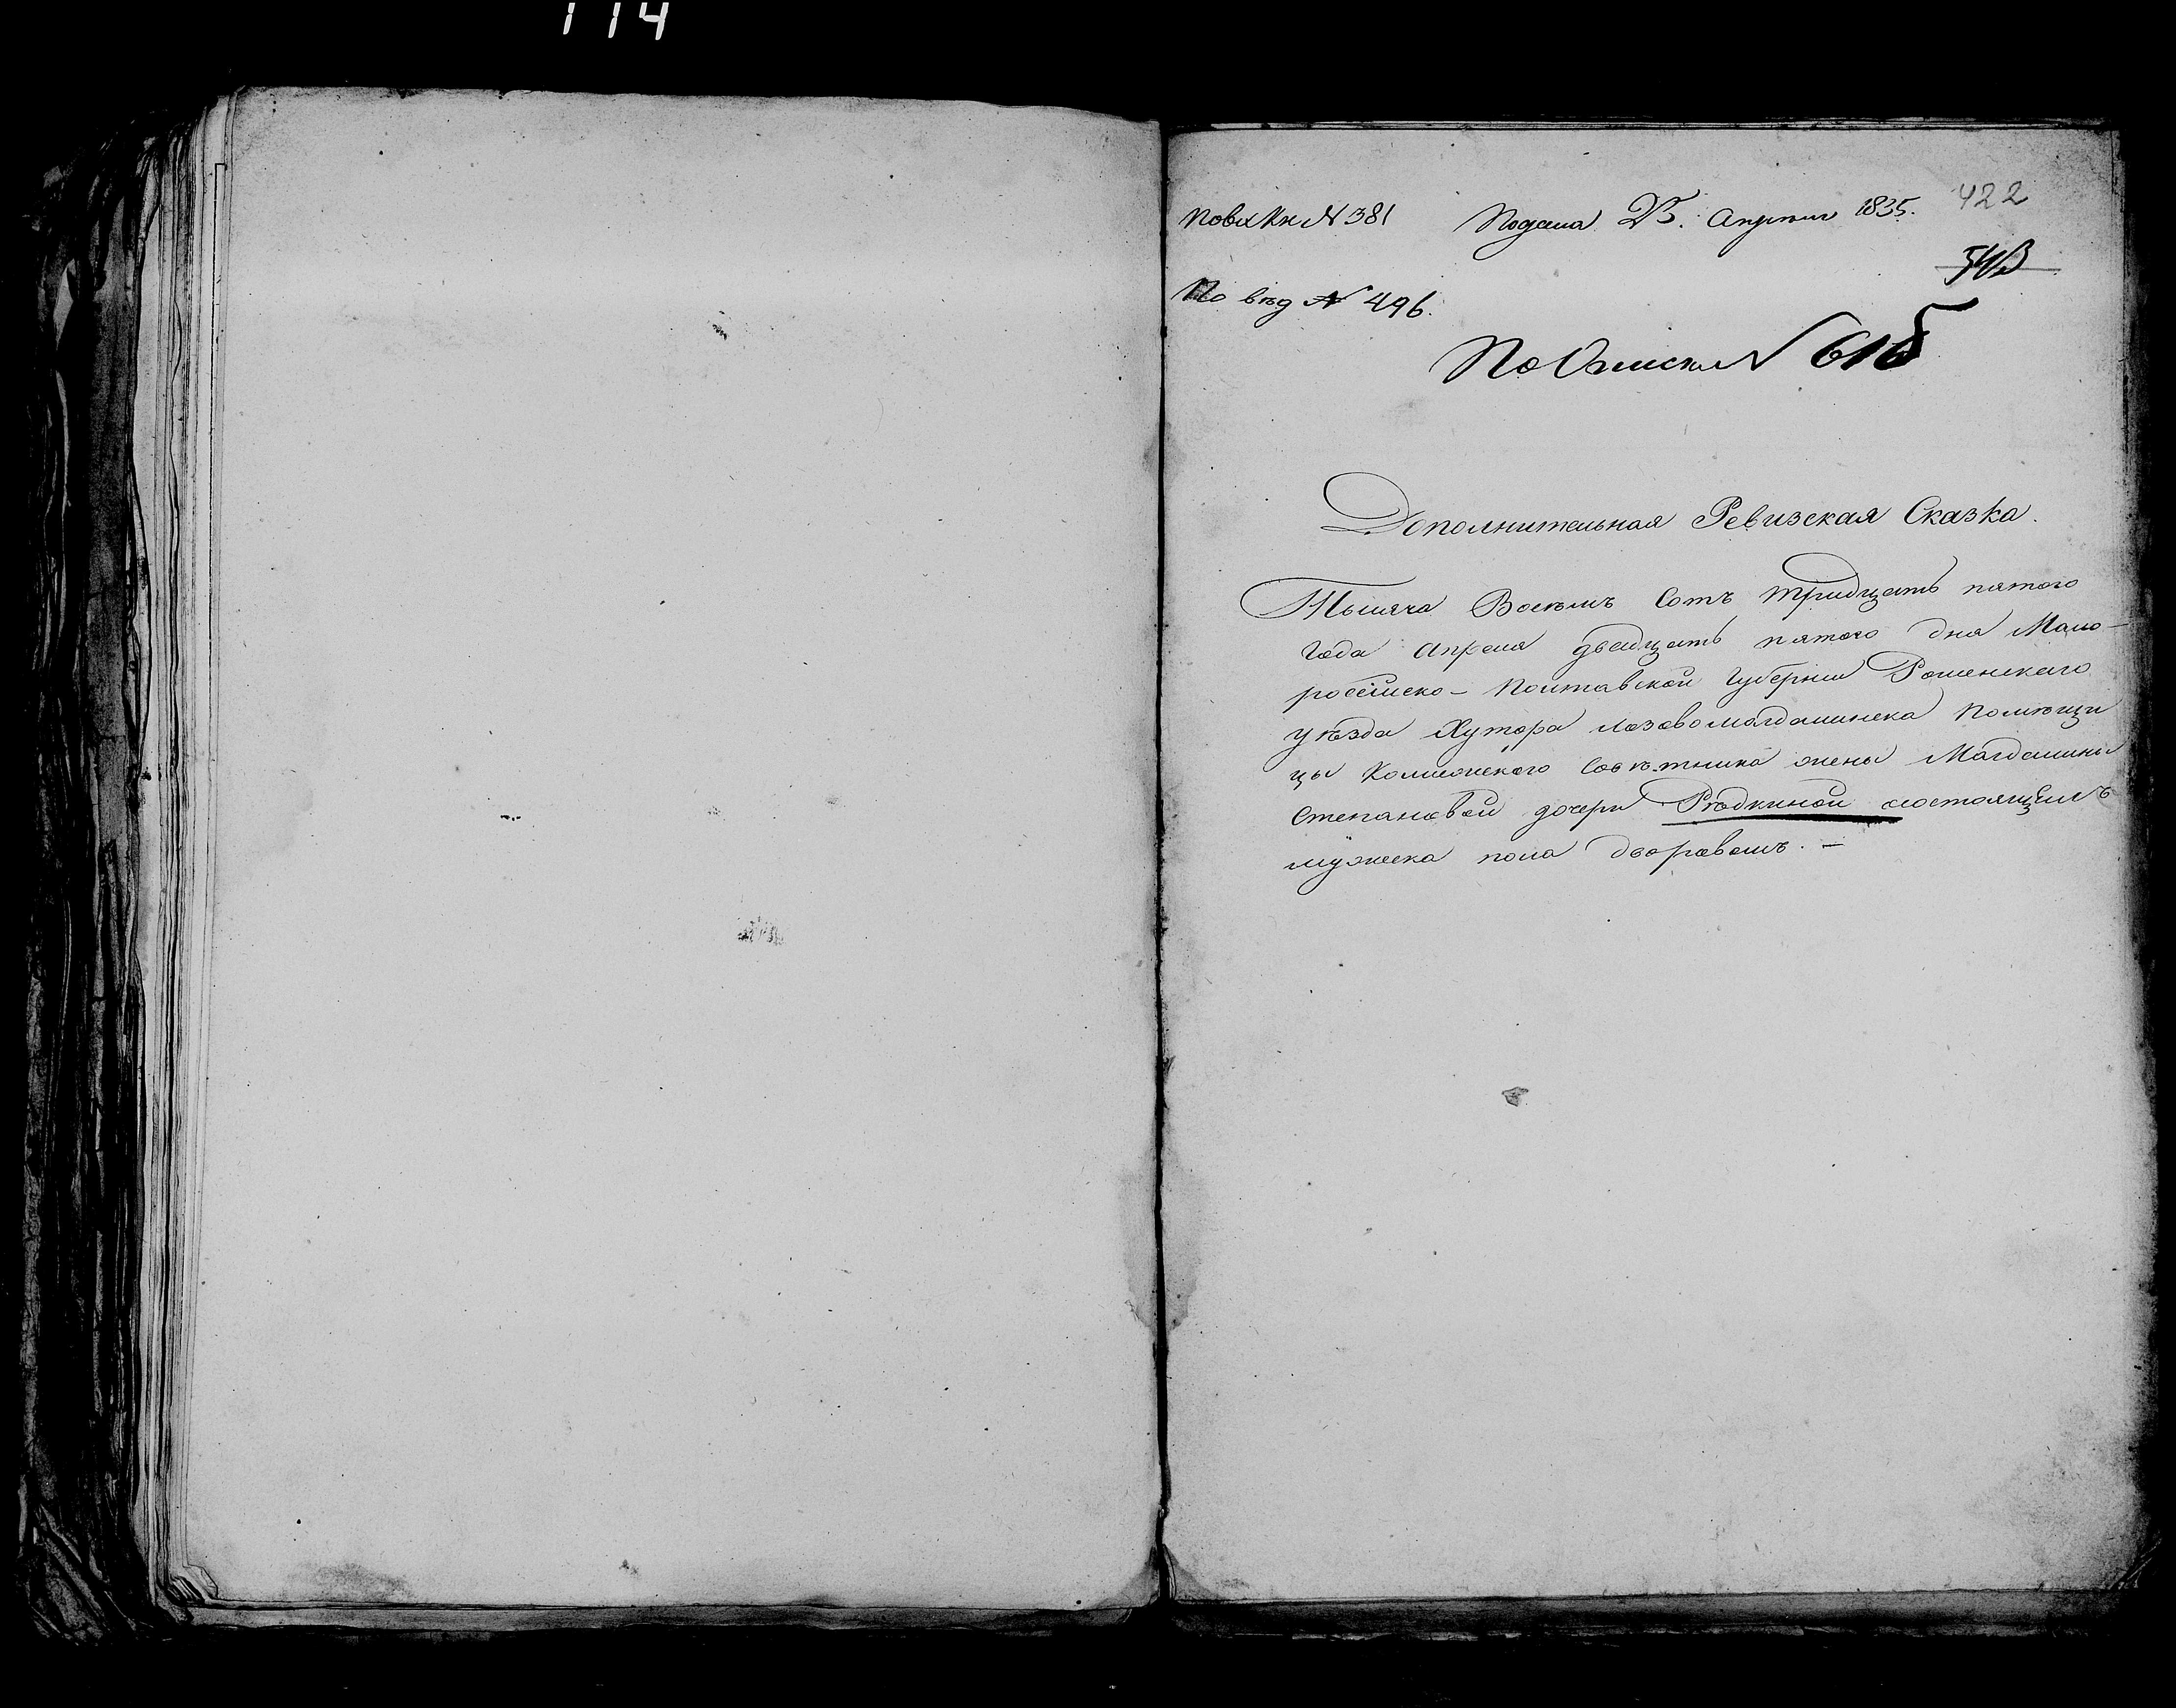 114
По вх Кн № 381 Подана 25. Апреля 1835. 422
По вѣд № 496.
По Описи № 616
Дополнительная Ревизская Сказка.
Тысяча Восемъ Сотъ тридцать пятого
года Апреля двадцать пятого дня Мало-
росейско - Полтавской Губернии Роменскаго
уѣзда Хутора Лозовомагдалинска помѣщи
цы Колежского Совѣтника жены Магдалины
Степановой дочери Рѣдкиной состоящимъ
мужеска пола дворовомъ. -